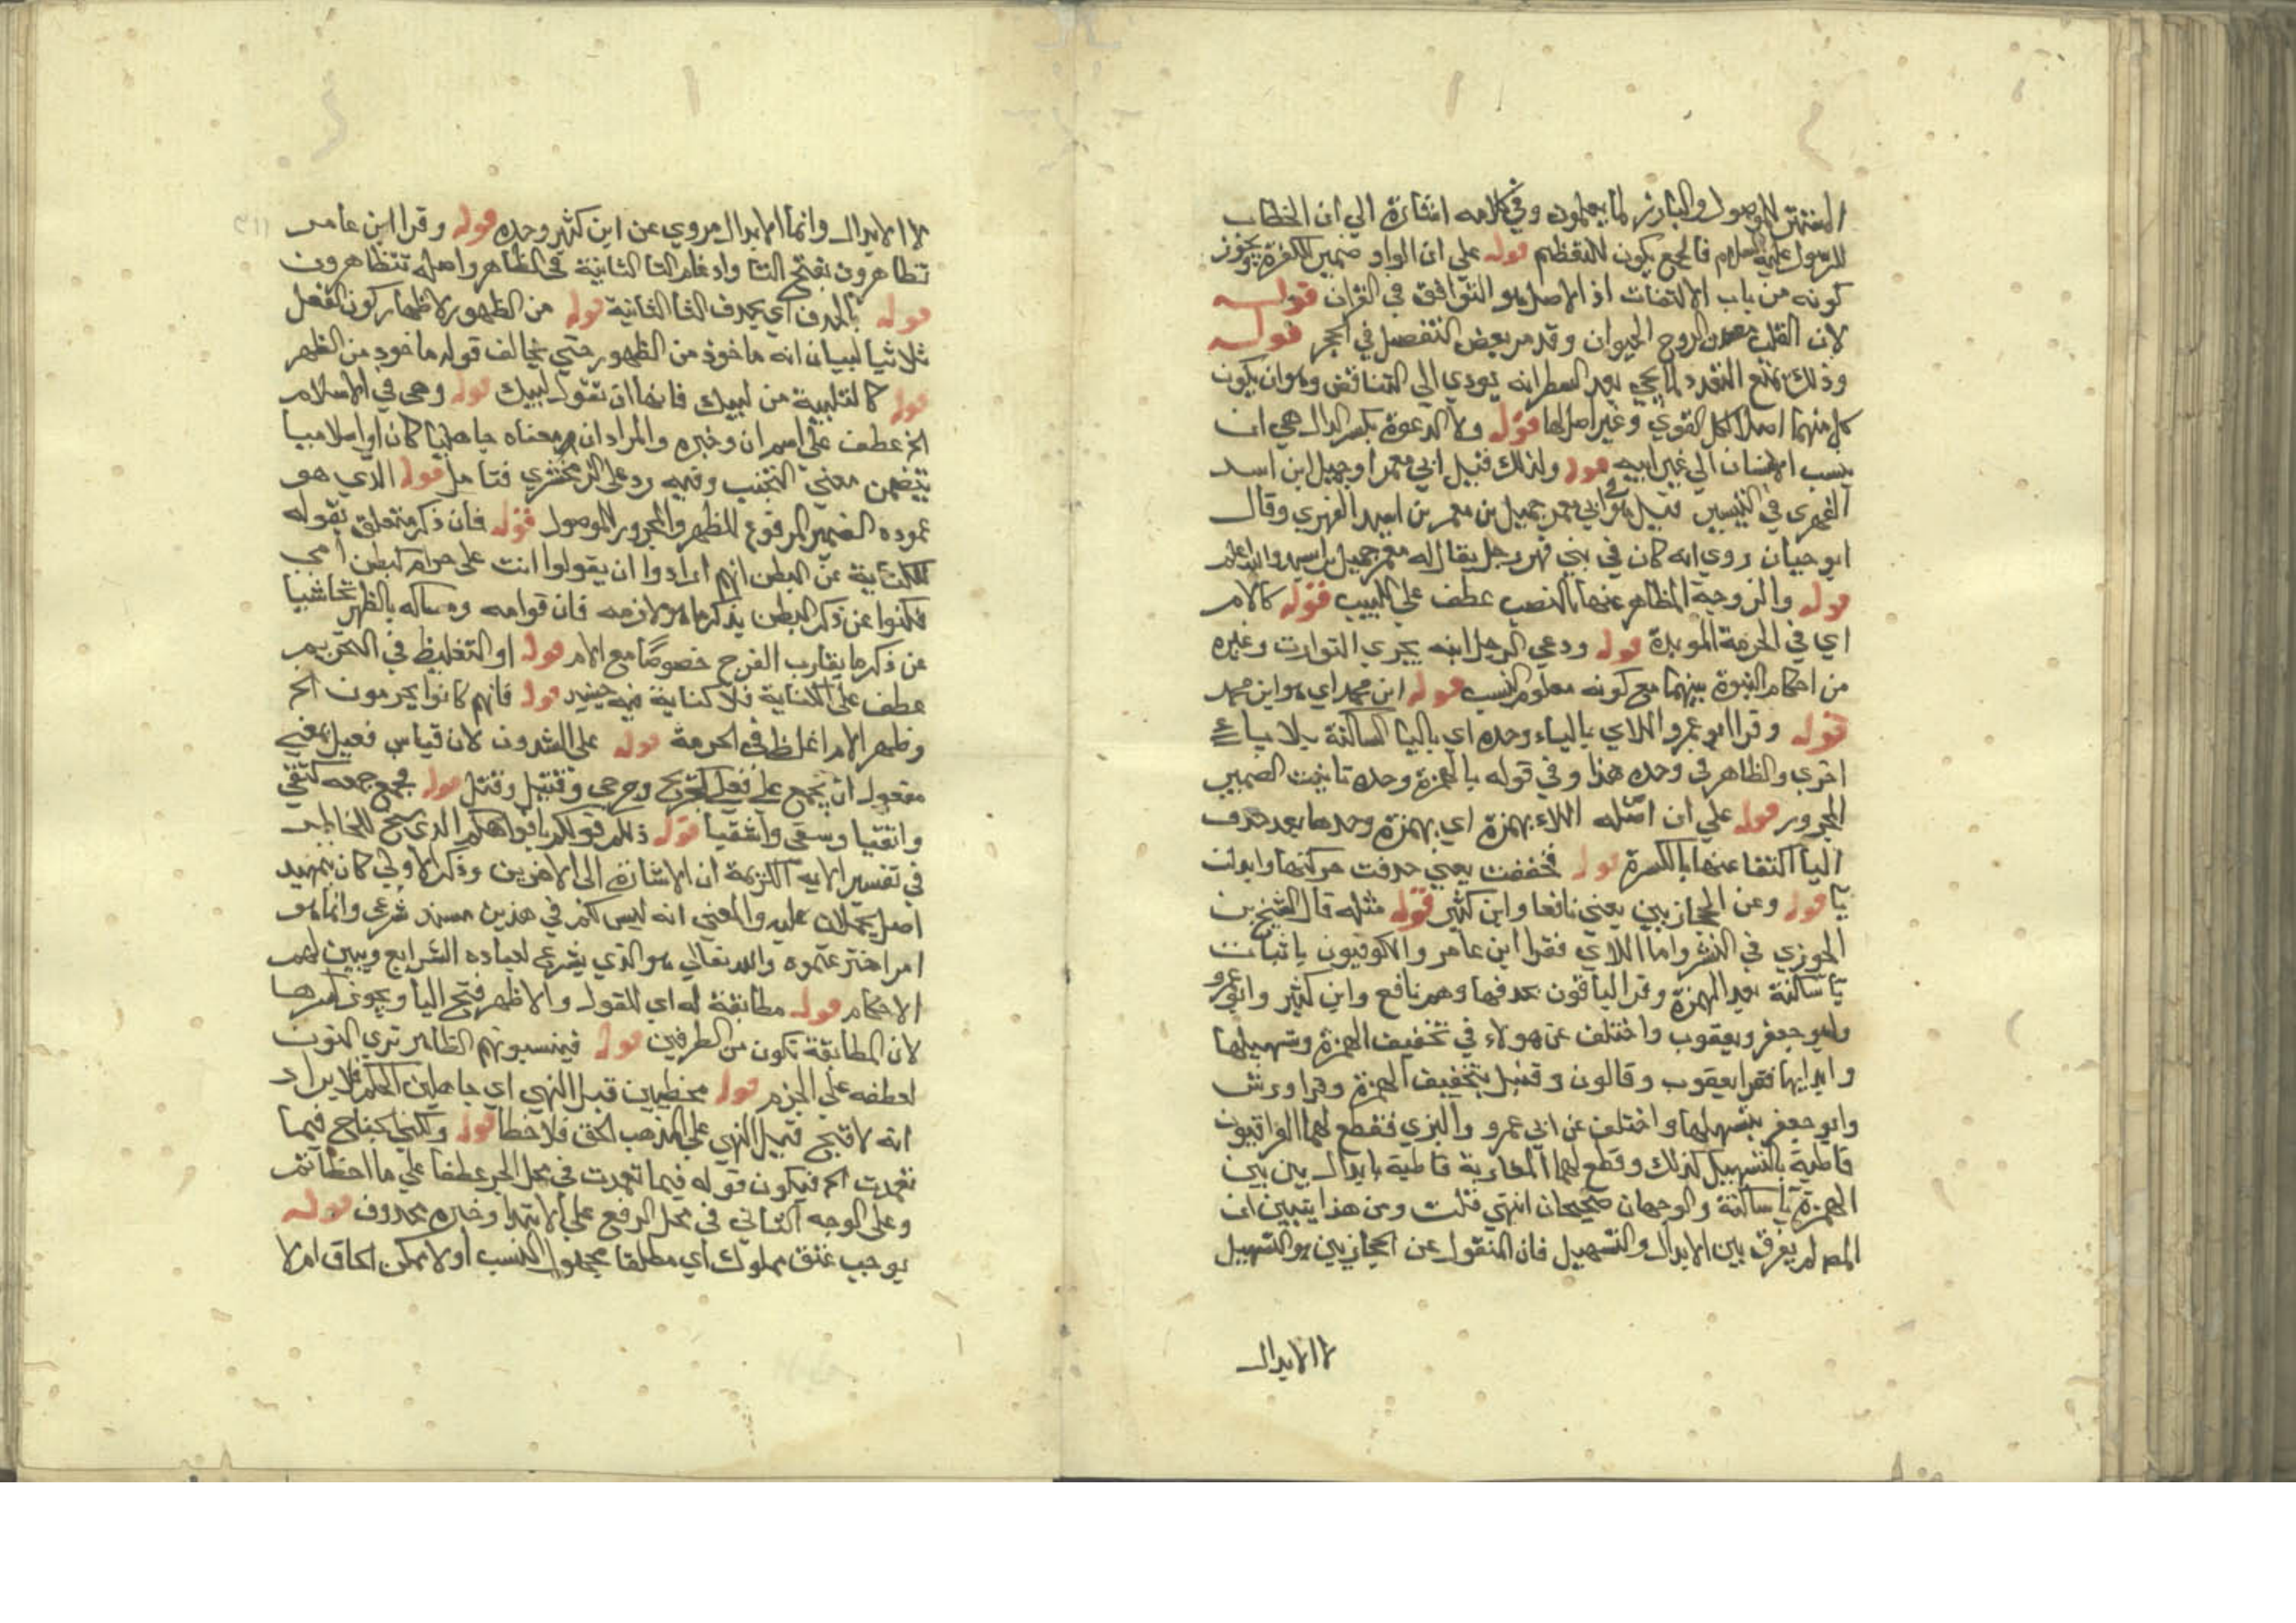 المستتر للموصول والبارز لما يعملون وفي كلامه اشارة الي ان الخطاب
للرسول عليه السلام فالجمع يكون للتعظيم قوله علي ان الواو ضمير الكفرة يجوز
كونه من باب الالتفات اذ الاصل هو التوافق في القران قوله
لان القلب معدن الروح الحيوان وقد مر بعض التفصيل في الحجر قوله
وذلك يمنع التعدد لما يجيء بعد اسطر انه يودي الي التناقض وهو ان يكون
كل منهما اصلا لكل القوي وغير اصل لها قوله ولا الدعوة بكسر الدال هي ان
ينسب الانسان الي غير ابيه قوله ولذلك قيل لابي معمر او جميل ابن اسد
الفهري في التيسير قيل هو ابي معمر جميل بن معمر بن اسد الفهري وقال
ابو حيان روي انه كان في بني فهر رجل يقال له معمر جميل بن اسد والله اعلم
قوله والزوجة المظاهر عنها بالنصب عطف علي اللبيب قوله كالام
اي في الحرمة الموبدة قوله ودعي الرجل ابنه يجري التوارث وغيره
من احكام البنوة بينهما مع كونه معلوم النسب قوله ابن محمد اي هو ابن محمد
قوله وقرا ابو عمرو اللاي بالياء وحده اي باليا الساكنة بلا ياء
اخري والظاهر في وحده هذا وفي قوله بالهمزة وحده تانيث الضمير
المجرور قوله علي ان اصله اللاء بهمزة اي بهمزة وحدها بعد حذف
اليا اكتفا عنها بالكسرة قوله فخففت يعني حذفت حركتها وابدلت
يا قوله وعن الحجازيين يعني نافعا وابن كثير قوله مثله قال الشيخ بن
الجوزي في النشر واما اللاي فقرا ابن عامر والكوفيون باثبات
يا ساكنة بعد الهمزة وقرا الباقون بحذفها وهم نافع وابن كثير وابو عمرو
وابو جعفر ويعقوب واختلف عن هولاء في تخفيف الهمزة وتسهيلها
وابدالها فقرا يعقوب وقالون وقنبل بتخفيف الهمزة وقرا ورش
وابو جعفر بتسهيلها واختلف عن ابي عمرو والبزي فقطع لهما العراقيون
قاطبة بالتسهيل كذلك وقطع لهما المغاربة قاطبة بابدال بين بين
الهمزة يا ساكنة والوجهان صحيحان انتهي قلت ومن هذا يتبين ان
المصـ لم يفرق بين الابدال والتسهيل فان المنقول عن الحجازيين هو التسهيل
لا الابدال
لا الابدال وانما الابدال مروي عن ابن كثير وحده قوله وقرا ابن عامر
تظاهرون بفتح التا وادغام التا الثانية في الظاهر واصله تتظاهرون
قوله بالحذف اي بحذف التا الثانية قوله من الظهور لاظهار كون الفعل
ثلاثيا لبيان انه ماخوذ من الظهور حتي يخالف قوله ماخوذ من الظهر
قوله كالتلبية من لبيك فانها ان تقول لبيك قوله وهي في الاسلام
الخ عطف علي اسم ان وخبره والمراد ان معناه جاهليا كان او اسلاميا
يتضمن معني التجنب وفيه رد علي الزمخشري فتامل قوله الذي هو
عموده الضمير المرفوع للظهر والمجرور للموصول قوله فان ذكره متعلق بقوله
للكناية عن البطن انهم ارادوا ان يقولوا انت علي حرام كبطن امي
فكنوا عن ذكر البطن بذكر ما هو لازمه فان قوامه ومساكه بالظهر تحاشيا
عن ذكر ما يقارب الفرج خصوصا مع الام قوله او التغليظ في التحريم
عطف علي الكناية فلا كناية فيه حينيذ قوله فانهم كانوا يحرمون الخ
وظهر الام اغلظ في الحرمة قوله علي الشذوذ لان قياس فعيل بمعني
مفعول ان يجمع علي فعلي كجريح وجرحي وقتيل وقتلي قوله فجمع جمعه كتقي
واتقيا وشقي واشقيا قوله ذلكم قولكم بافواهكم الذي سنح للخاطر
في تفسير الاية الكريمة ان الاشارة الي الاخرين وذكر الاولي كان تمهيد
اصل يحملان عليه والمعني انه ليس لكم في هذين مستند شرعي وانما هو
امر اخترعتموه والله تعالي هو الذي يشرع لعباده الشرايع ويبين لهم
الاحكام قوله مطابقة له اي للقول والاظهر فتح اليا ويجوز كسرها
لان المطابقة تكون من الطرفين قوله فينسبونهم الظاهر تري النون
لعطفه علي الجزم قوله مخطيين قبل النهي اي جاهلين الحكم فلا يراد
انه لا قبح قبل النهي علي المذهب الحق فلا خطا قوله ولكن الجناح فيما
تعمدت الخ فيكون قوله فيما تعمدت في محل الجر عطفا علي ما اخطاتم
وعلي الوجه الثاني في محل الرفع علي الابتدا وخبره محذوف قوله
يوجب عتق مملوك اي مطلقا مجهول النسب اولا ممكن الحاق ام لا